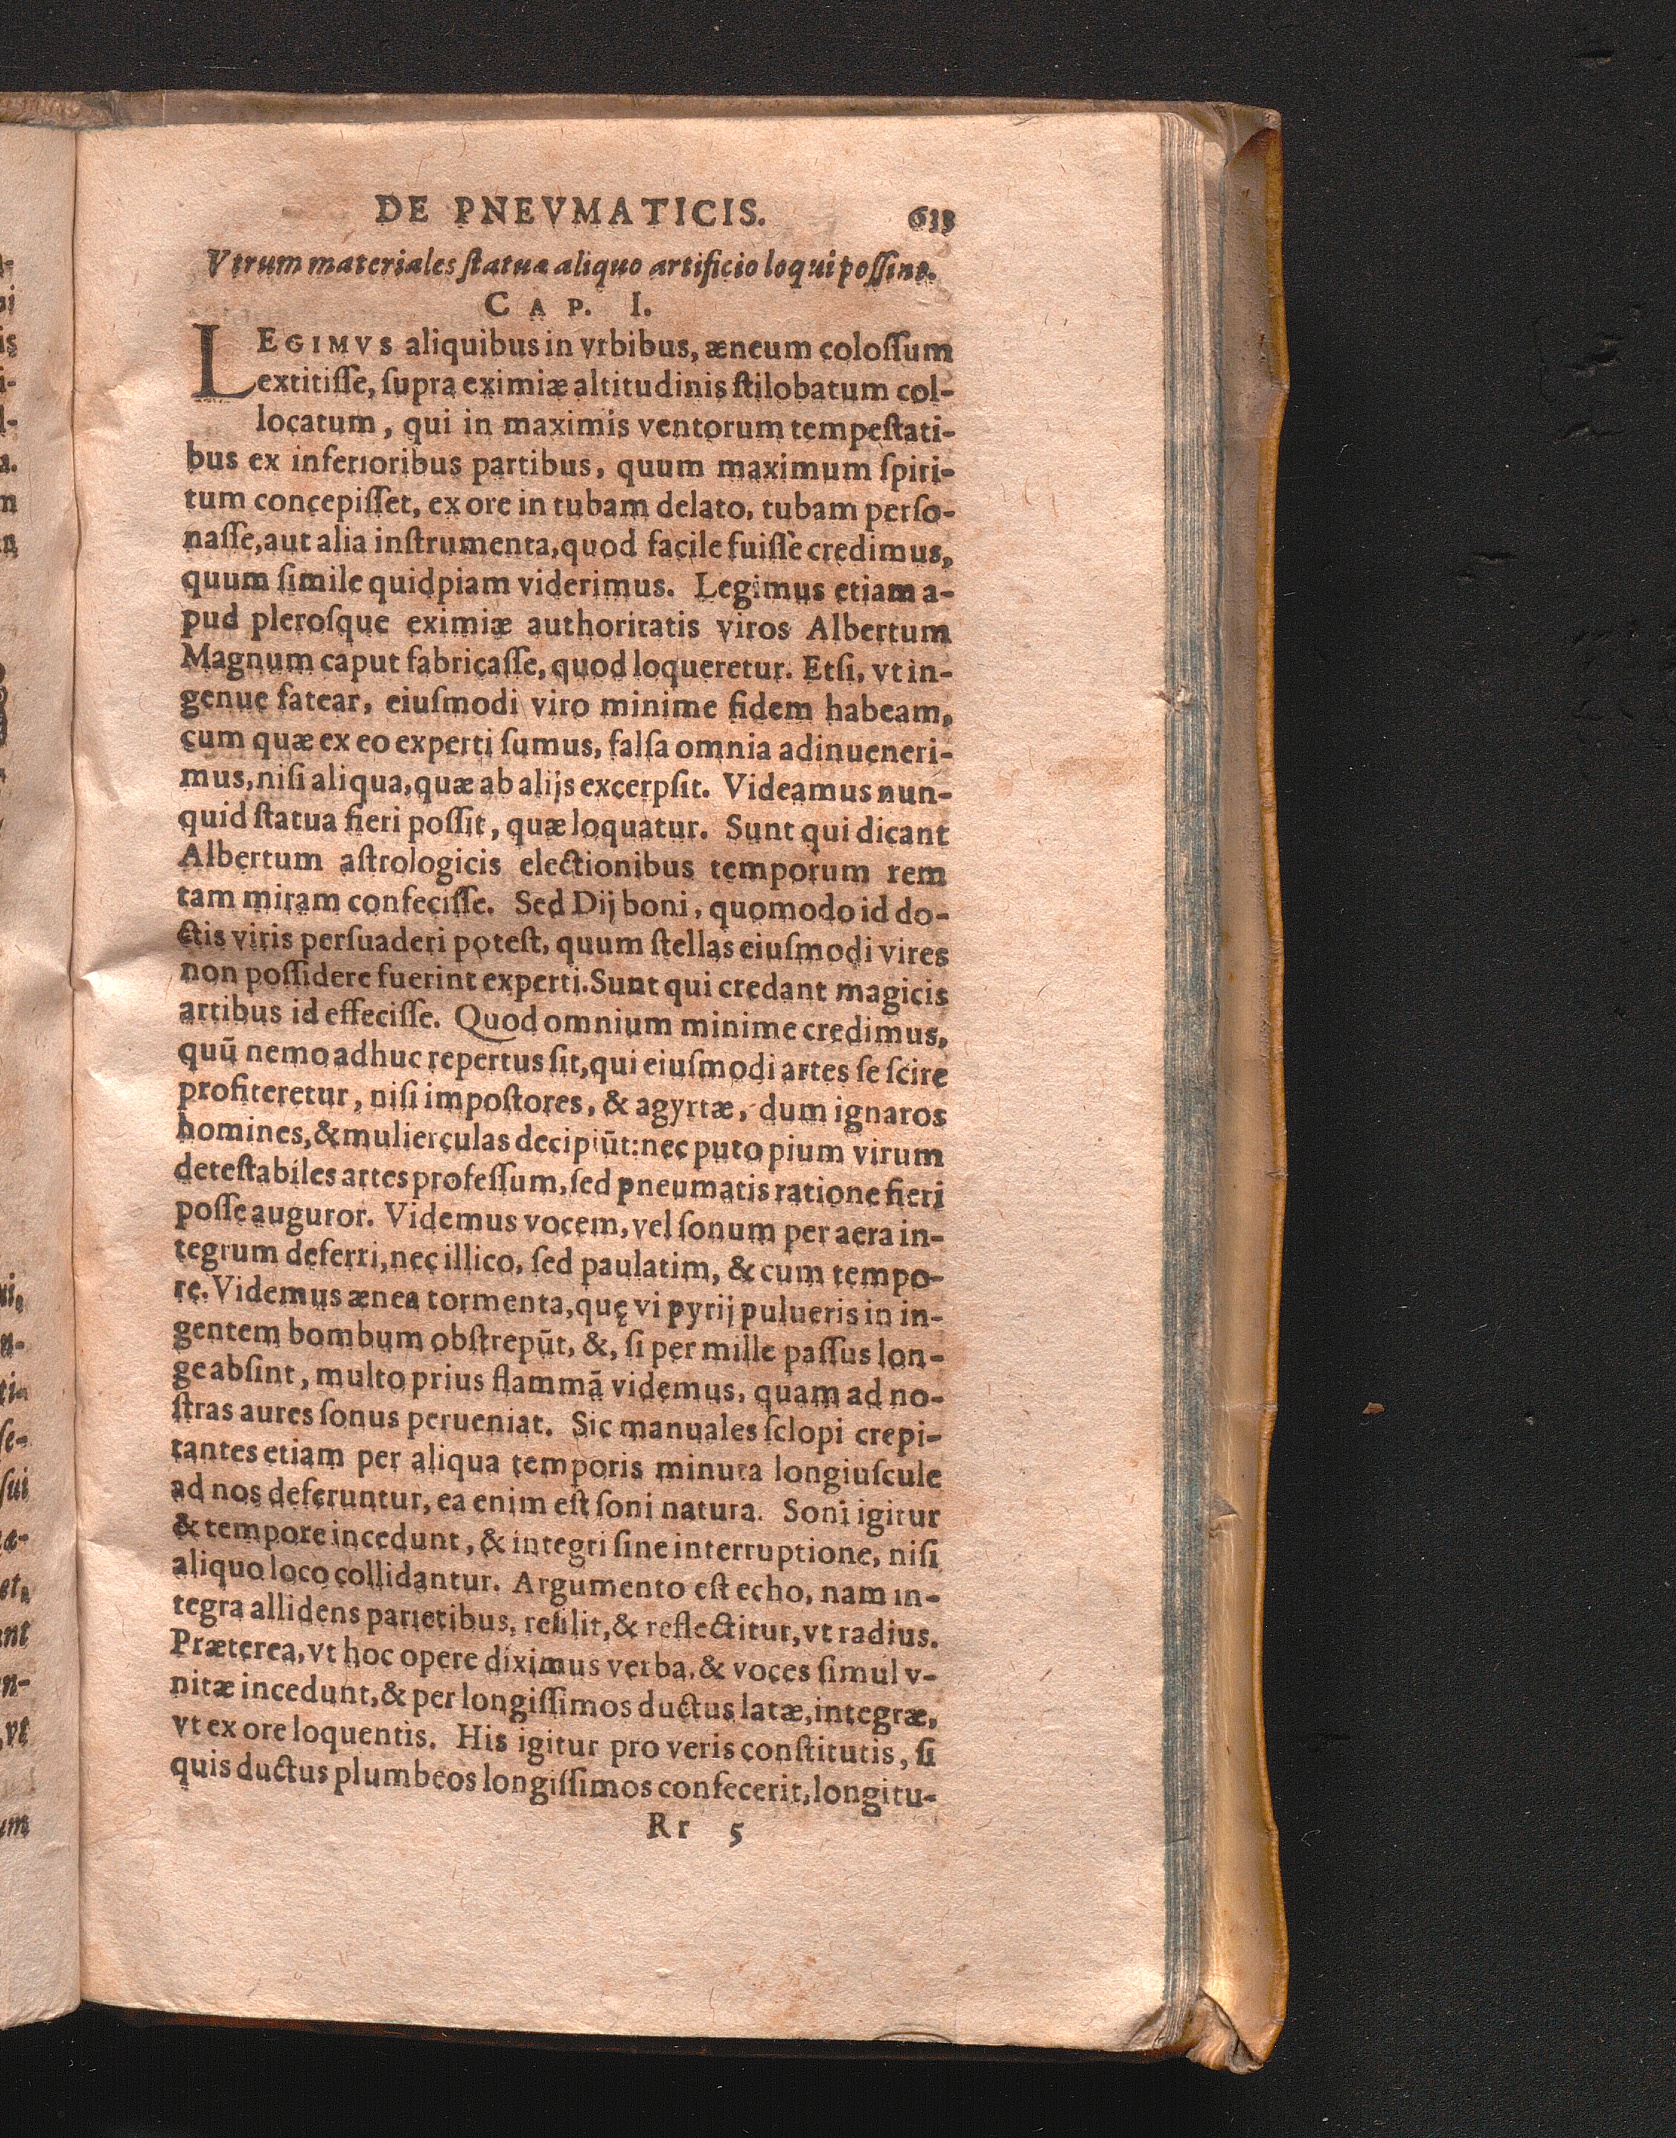 DE PNEVMATICIS. 633
Vtrum materiales ſtatuæ aliquo artificio loqui poſſint.
CAP. I.
LEGIMVS aliquibus in vrbibus, æneum coloſſum
extitiſſe, ſupra eximiæ altitudinis ſtilobatum col-
locatum, qui in maximis ventorum tempeſtati-
bus ex inferioribus partibus, quum maximum ſpiri-
tum concepiſſet, ex ore in tubam delato, tubam perſo-
naſſe, aut alia inſtrumenta, quod facile fuiſſe credimus,
quum ſimile quidpiam viderimus. Legimus etiam a-
pud pleroſque eximiæ authoritatis viros Albertum
Magnum caput fabricaſſe, quod loqueretur. Etſi, vt in-
genue fatear, eiuſmodi viro minime fidem habeam,
cum quæ ex eo experti ſumus, falſa omnia adinueneri-
mus, niſi aliqua, quæ ab alijs excerpſit. Videamus nun-
quid ſtatua fieri poſſit, quæ loquatur. Sunt qui dicant
Albertum aſtrologicis electionibus temporum rem
tam miram confeciſſe. Sed Dij boni, quomodo id do-
ctis viris perſuaderi poteſt, quum ſtellas eiuſmodi vires
non poſſidere fuerint experti. Sunt qui credant magicis
artibus id effeciſſe. Quod omnium minime credimus,
quū nemo adhuc repertus ſit, qui eiuſmodi artes ſe ſcire
profiteretur, niſi impoſtores, & agyrtæ, dum ignaros
homines, & mulierculas decipiūt: nec puto pium virum
deteſtabiles artes profeſſum, ſed pneumatis ratione fieri
poſſe auguror. Videmus vocem, vel ſonum per aera in-
tegrum deferri, nec illico, ſed paulatim, & cum tempo-
re. Videmus ænea tormenta, quę vi pyrij pulueris in in-
gentem bombum obſtrepūt, &, ſi per mille paſſus lon-
ge abſint, multo prius flammā videmus, quam ad no-
ſtras aures ſonus perueniat. Sic manuales ſclopi crepi-
tantes etiam per aliqua temporis minuta longiuſcule
ad nos deferuntur, ea enim eſt ſoni natura. Soni igitur
& tempore incedunt, & integri ſine interruptione, niſi
aliquo loco collidantur. Argumento eſt echo, nam in-
tegra allidens parietibus, reſilit, & reflectitur, vt radius.
Præterea, vt hoc opere diximus verba, & voces ſimul v-
nitæ incedunt, & per longiſſimos ductus latæ, integræ,
vt ex ore loquentis. His igitur pro veris conſtitutis, ſi
quis ductus plumbeos longiſſimos confecerit, longitu-
Rr 5